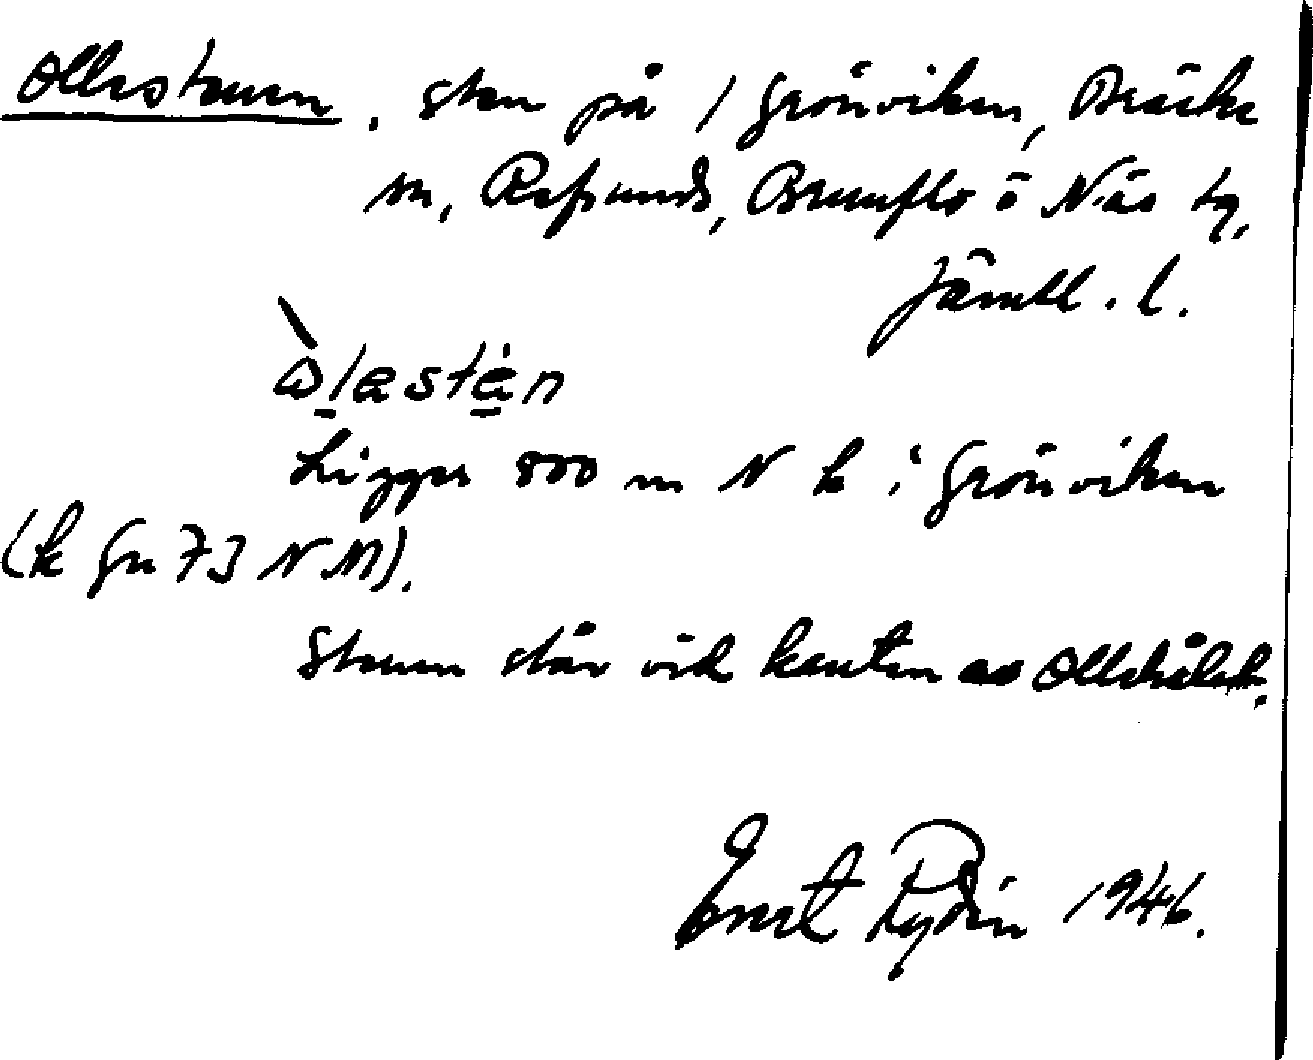 Ollestenen, sten på / Grönviken, Bräcke
sn, Refsunds, Brunflo o Näs tg,
Jämtl. l.
òlastén
Ligger 800 m N k i Grönviken
(k gn 73 N M).
Stenen står vid kanten av Ollehålet.
Ernst Rydin 1946.